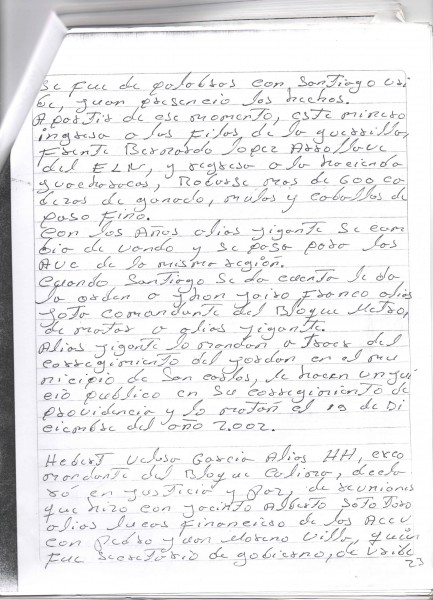 Se fue de palabras con Santiago Uri
be, Juan presencio los hechos.
A partir de ese momento, este minero
ingresa a las Filas de la guerrilla,
Frente Bernardo Lopez Arrollave
del ELN, y regresa a la hacienda
guacharacas, Robarse mas de 600 ca
bezas de ganado, mulas y caballos de
paso Fino.
Con los Años alias gigante Se cam
bia de vando y se pasa para las
AUC de la misma región.
Cuando Santiago Se da cuenta le da
la orden a Jhon Jairo Franco alias
Jota comandante del Bloque Metro,
de matar a alias gigante.
Alias gigante lo mandan a traer del
corregimiento del Jordan en el mu
nicipio de San Carlos, le hacen un jui
cio publico en su corregimiento de
providencia y lo matan el 19 de Di
ciembre del año 2.002.
Hebert Veloza Garcia Alias HH, exco
mandante del Bloque Calima, decla
ró en justicia y paz, de reuniones
que hizo con Jacinto Alberto Soto Toro
alias lucas Financiero de las ACCU
con Pedro Juan Moreno Villa, quien
Fue Secretario de gobierno, de Uribe
23